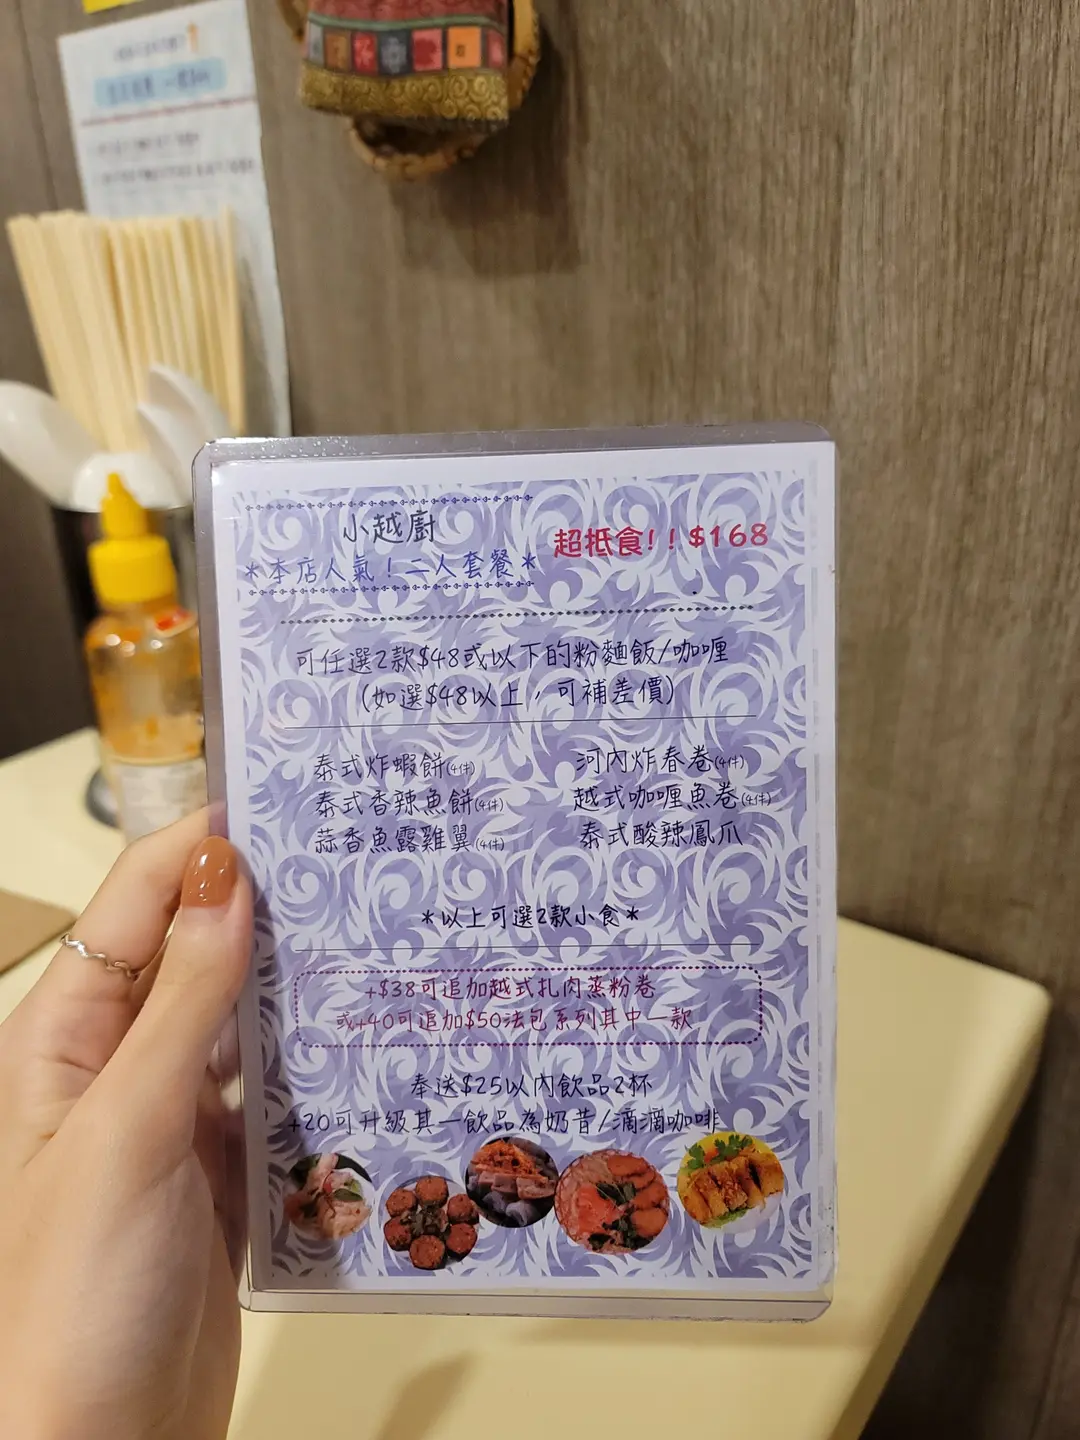 小越廚
*本店人氣！二人套餐*
超抵食！！$168
可任選2款$48或以下的粉麵飯/咖喱
(如選$48以上，可補差價)
泰式炸蝦餅(4件)
河內炸春卷(4件)
泰式香辣魚餅(4件)
越式咖喱魚卷(4件)
蒜香魚露雞翼(4件)
泰式酸辣鳳爪
*以上可選2款小食*
+$38可追加越式扎肉蒸粉卷
或+40可追加$50法包系列其中一款
奉送$25以內飲品2杯
+20可升級其一飲品為奶昔/滴滴咖啡